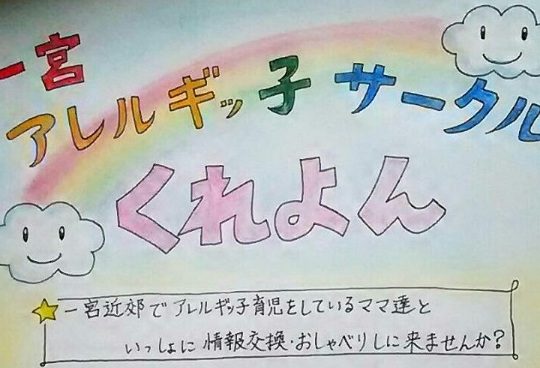 一宮
アレルギッ子 サークル
くれよん
一宮近郊でアレルギッ子育児をしているママ達と
いっしょに情報交換・おしゃべりしに来ませんか?